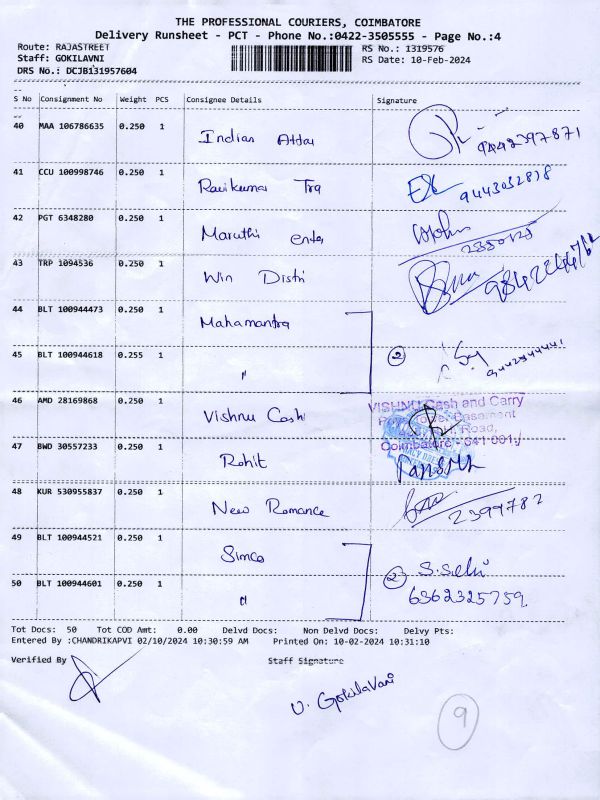 THE PROFESSIONAL COURIERS, COIMBATORE
Delivery Runsheet - PCT - Phone No.:0422-3505555 - Page No.:4
Route: RAJASTREET RS No.: 1319576
Staff: GOKILAVNI RS Date: 10-Feb-2024
DRS No.: DCJB131957604
S No Consignment No Weight PCS Consignee Details Signature
40 MAA 106786635 0.250 1 Indian Attar 9442397871
41 CCU 100998746 0.250 1 Ravikumar Trq 9443032818
42 PGT 6348280 0.250 1 Maruthi enter
43 TRP 1094536 0.250 1 Win Distri
44 BLT 100944473 0.250 1 Mahamantra
45 BLT 100944618 0.255 1 " 2
46 AMD 28169868 0.250 1 Vishnu Cash VISHNU Cash and Carry
Basement
Road,
Coimbatore - 641 001
47 BWD 30557233 0.250 1 Rohit
48 KUR 530955837 0.250 1 New Romance 2394782
49 BLT 100944521 0.250 1 Simco 2 S. Selvi
50 BLT 100944601 0.250 1 " 6362325759
Tot Docs: 50 Tot COD Amt: 0.00 Delvd Docs: Non Delvd Docs: Delvy Pts:
Entered By :CHANDRIKAPVI 02/10/2024 10:30:59 AM Printed On: 10-02-2024 10:31:10
Verified By Staff Signature
U. Gokilavani
9